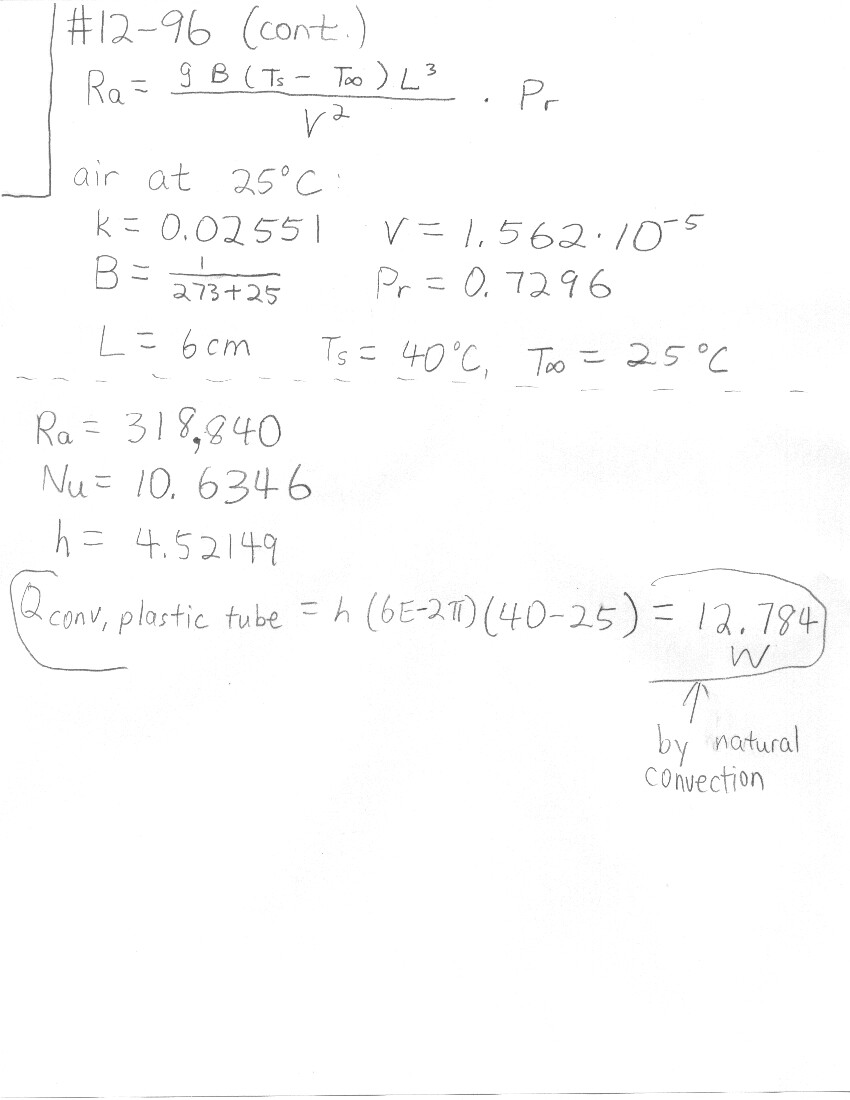 #12-96 (cont.)
Ra = g B (Ts - T∞) L³ / V² · Pr
air at 25°C:
k = 0.02551 V = 1.562·10⁻⁵
B = 1 / 273+25 Pr = 0.7296
L = 6cm Ts = 40°C, T∞ = 25°C
Ra = 318,840
Nu = 10.6346
h = 4.52149
Qconv, plastic tube = h (6E-2π)(40-25) = 12.784
W
↑
by natural
convection